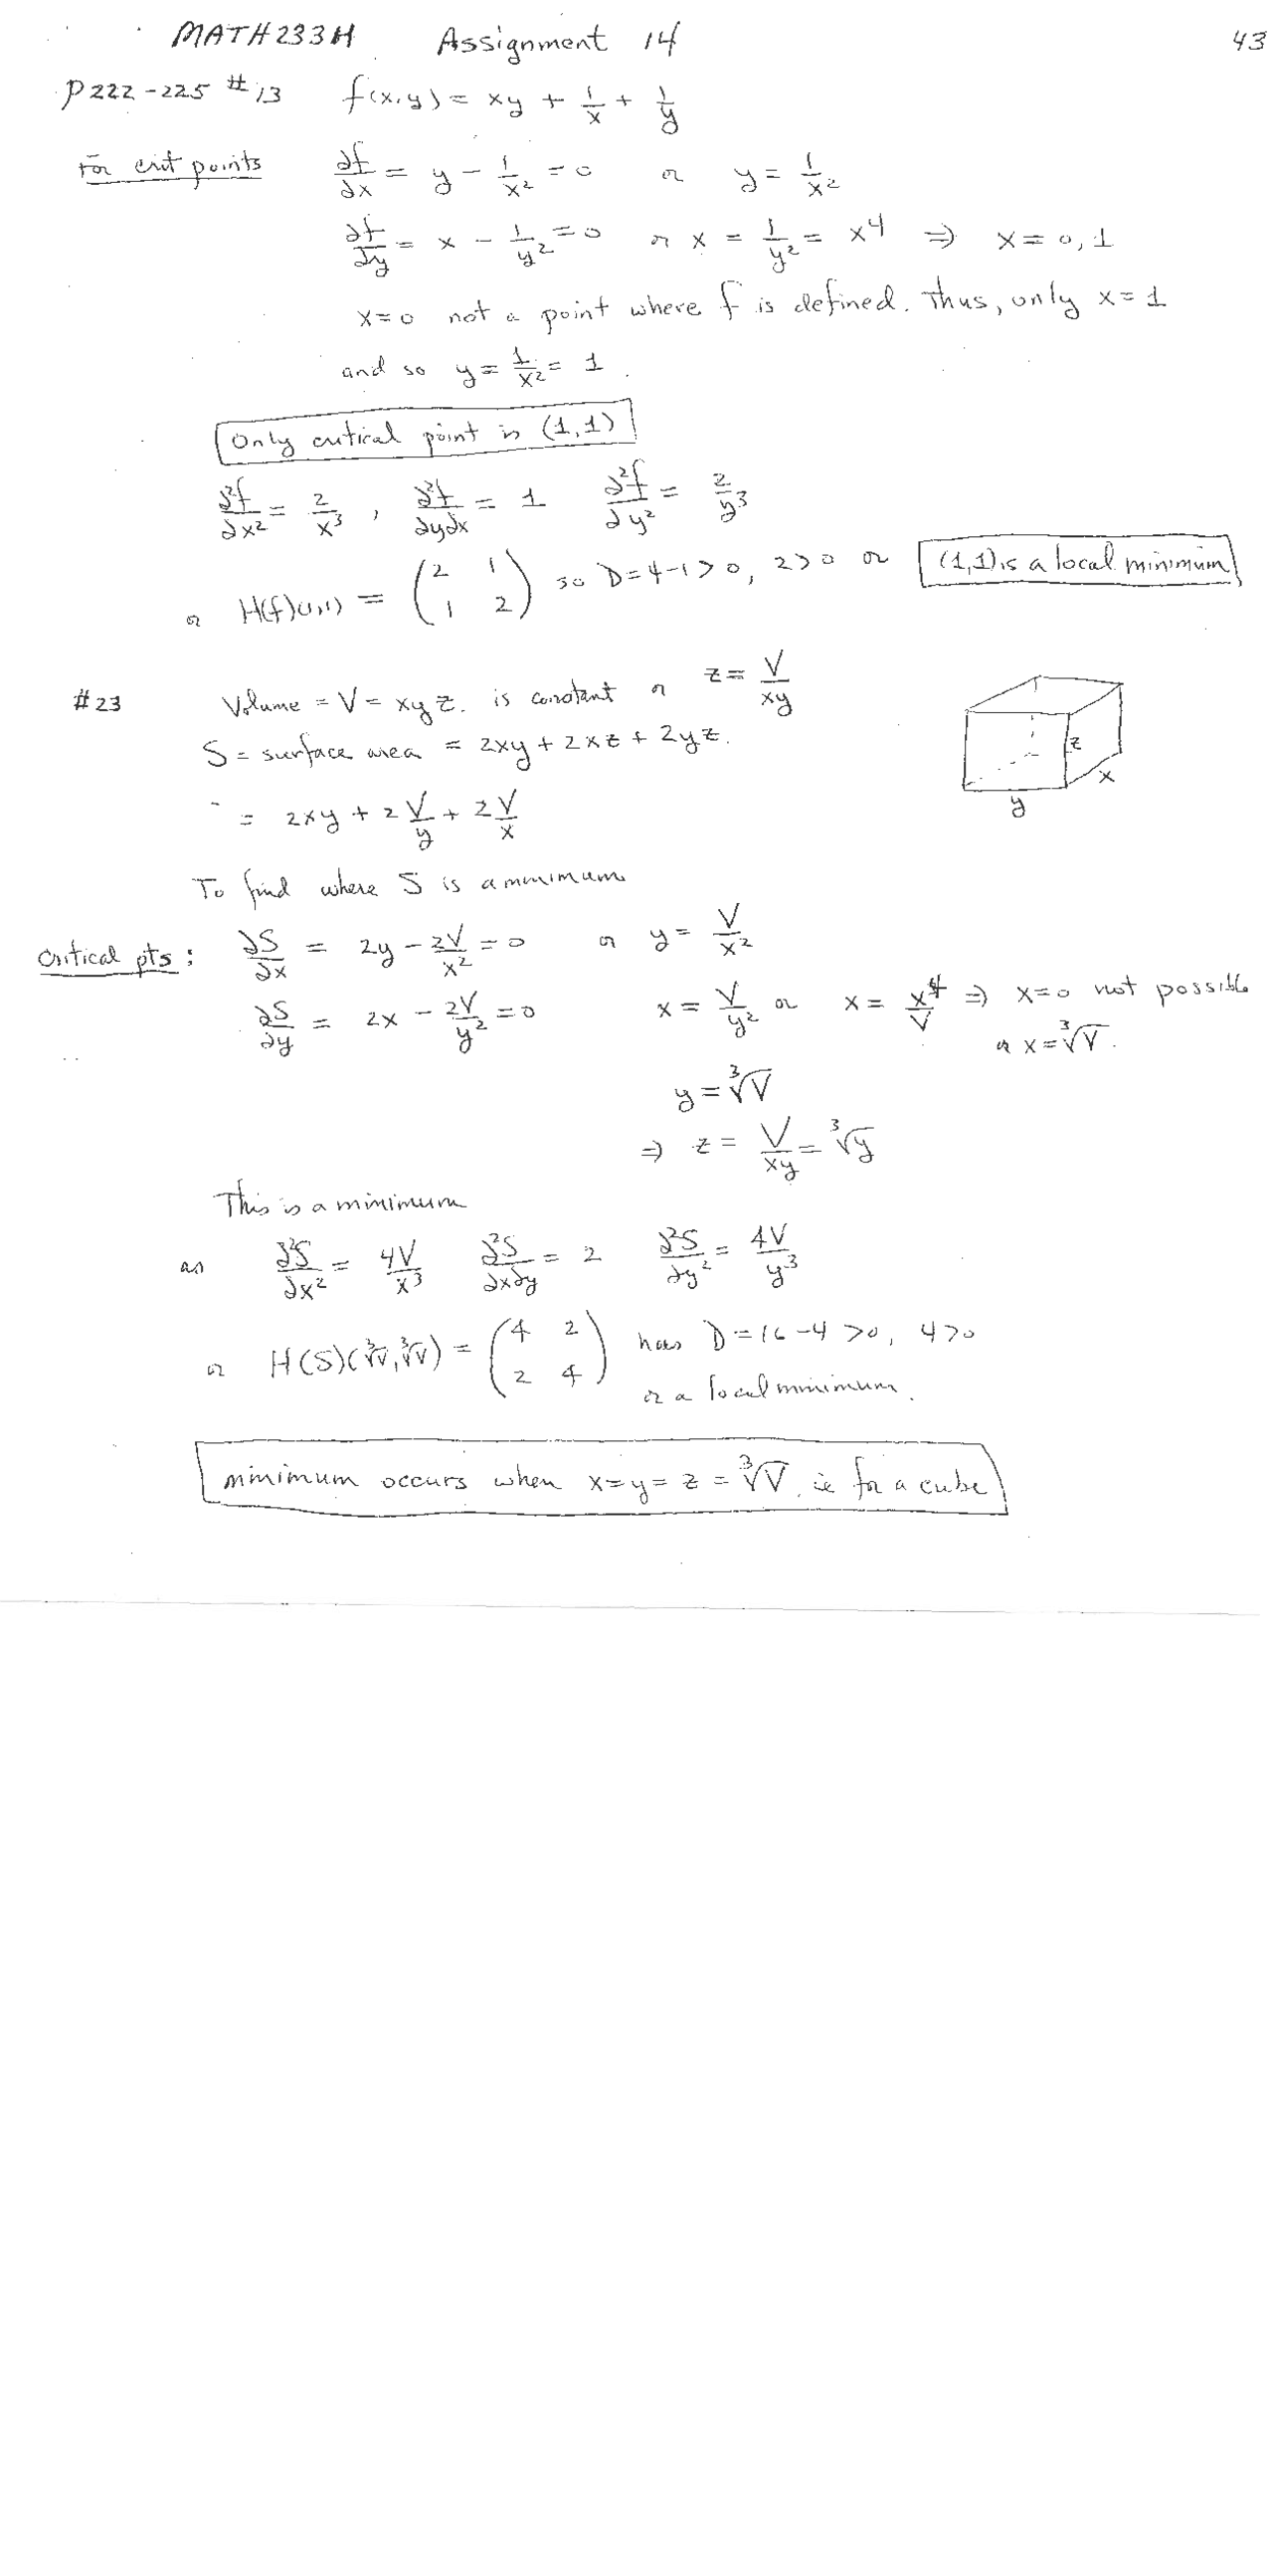 MATH233H Assignment 14 43
P222-225 #13 f(x,y) = xy + 1/x + 1/y
For crit points ∂f/∂x = y - 1/x² = 0 or y = 1/x²
∂f/∂y = x - 1/y² = 0 or x = 1/y² = x⁴ ⇒ x = 0, 1
x=0 not a point where f is defined. Thus, only x=1
and so y = 1/x² = 1.
Only critical point is (1,1)
∂²f/∂x² = 2/x³, ∂²f/∂y∂x = 1 ∂²f/∂y² = 2/y³
or H(f)(1,1) = (2 1; 1 2) so D=4-1>0, 2>0 or (1,1) is a local minimum
#23 Volume = V = xyz. is constant or z = V/xy
S = surface area = 2xy + 2xz + 2yz.
= 2xy + 2V/y + 2V/x
z
x
y
To find where S is a minimum
Critical pts: ∂S/∂x = 2y - 2V/x² = 0 or y = V/x²
∂S/∂y = 2x - 2V/y² = 0 x = V/y² or x = x⁴/V ⇒ x=0 not possible
or x = ∛V.
y = ∛V
⇒ z = V/xy = ∛y
This is a minimum
as ∂²S/∂x² = 4V/x³ ∂²S/∂x∂y = 2 ∂²S/∂y² = 4V/y³
or H(S)(∛V,∛V) = (4 2; 2 4) has D=16-4>0, 4>0
or a local minimum.
minimum occurs when x=y=z=∛V, ie for a cube